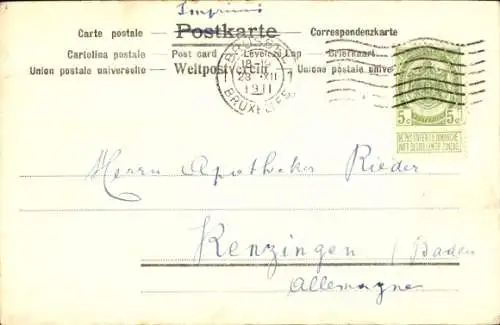 Imprimé
Carte postale — Postkarte — Correspondenzkarte
Cartolina postale — Post card — Levelező Lap — Briefkaart
Union postale universelle — Weltpostverein — Unione postale univer
BRUXELLES
18-19
23 XII
1911
BRUXELLES
5c 5c
NE PAS LIVRER LE DIMANCHE
NIET BESTELLEN OP ZONDAG
Herrn Apotheker Rieder
Kenzingen / Baden
Allemagne